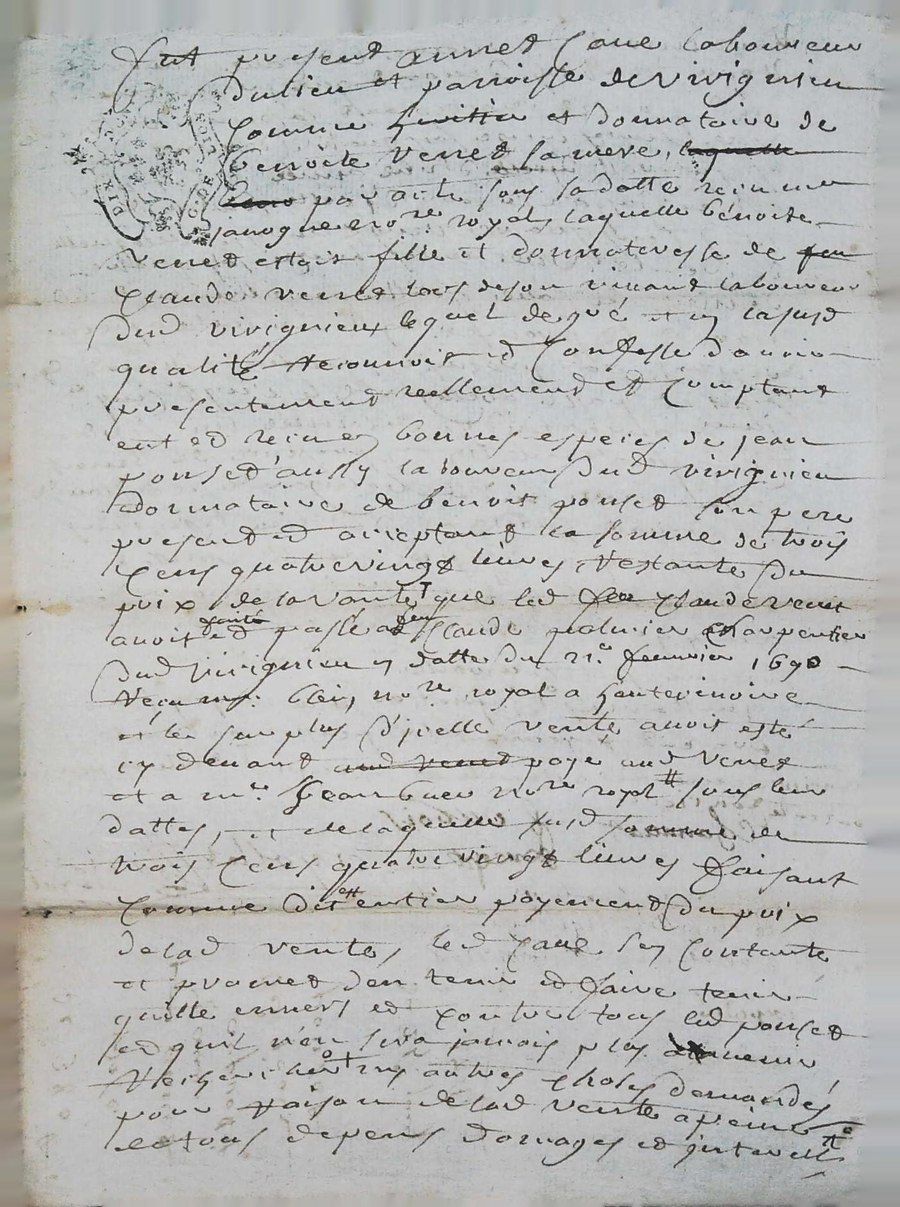 Fut present annet caue laboureur
du lieu et parroisse de vivignieu
comme heritier et donnataire de
benoite venet sa mere, laquelle
par acte sous sa datte receu me
janogue no.re royal, laquelle bénoite
venet estoit fille et donnateresse de feu
claude venet lors de son vivant laboureur
dud vivignieu lequel de gré et en la susd
qualité reconnoit et confesse d'avoir
presentement reellement et comptant
eut et receu en bonnes especes de jean
ponset aussy laboureur dud vivignieu
donnataire de benoit ponset son pere
present et acceptant la somme de trois
cens quatre vingt livres restante du
prix de la vante que led feu claude venet
avoit faitte et passé a feu claude charpentier
dud vivignieu en datte du 21.e feuvrier 1690
receu me. no.re royal a
et le surplus d'jcelle vente avoit esté
cy devant aud venet payé aud venet
et a m.re jean no.re royal sous leur
dattes, et de laquelle susd somme de
trois cens quatre vingt livres faisant
comme dit est entier payement du prix
de lad vente, led caue s'en contante
et promet d'en tenir et faire tenir
quitte envers et contre tous led ponset
et qu'il n'en sera jamais plus
recherché ny autres choses demandés
pour raison de lad vente a peine
de tous depens domages et interest
DIX
G. DE LION